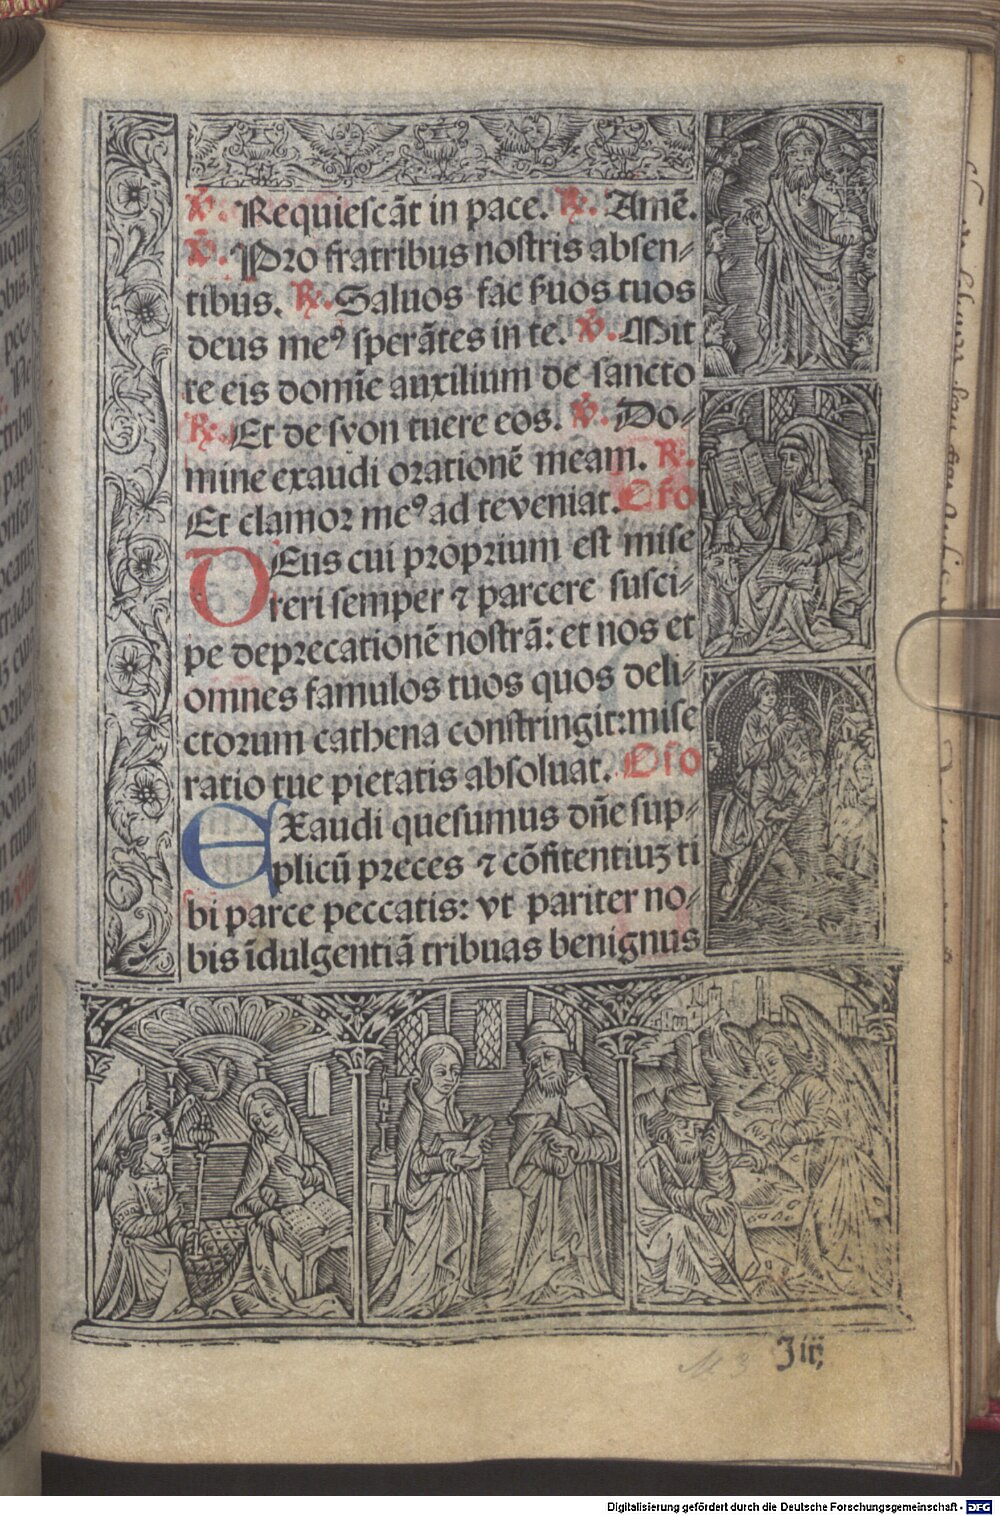 ℣. Requiescāt in pace. ℟. Amē.
℣. Pro fratribus nostris absen-
tibus. ℟. Saluos fac ẜuos tuos
deus meꝰ sperātes in te. ℣. Mit
te eis domīe auxilium de sancto
℟. Et de syon tuere eos. ℣. Do-
mine exaudi orationē meam. ℟.
Et clamor meꝰ ad te veniat. Oro
DEus cui proprium est mise
reri semper ⁊ parcere susci-
pe deprecationē nostrā: et nos et
omnes famulos tuos quos deli-
ctorum cathena constringit: mise
ratio tue pietatis absoluat. Oro
EXaudi quesumus dn̄e sup-
plicū preces ⁊ cōfitentiuꝫ ti
bi parce peccatis: vt pariter no-
bis īdulgentiā tribuas benignus
J iij
M 3
Digitalisierung gefördert durch die Deutsche Forschungsgemeinschaft - DFG